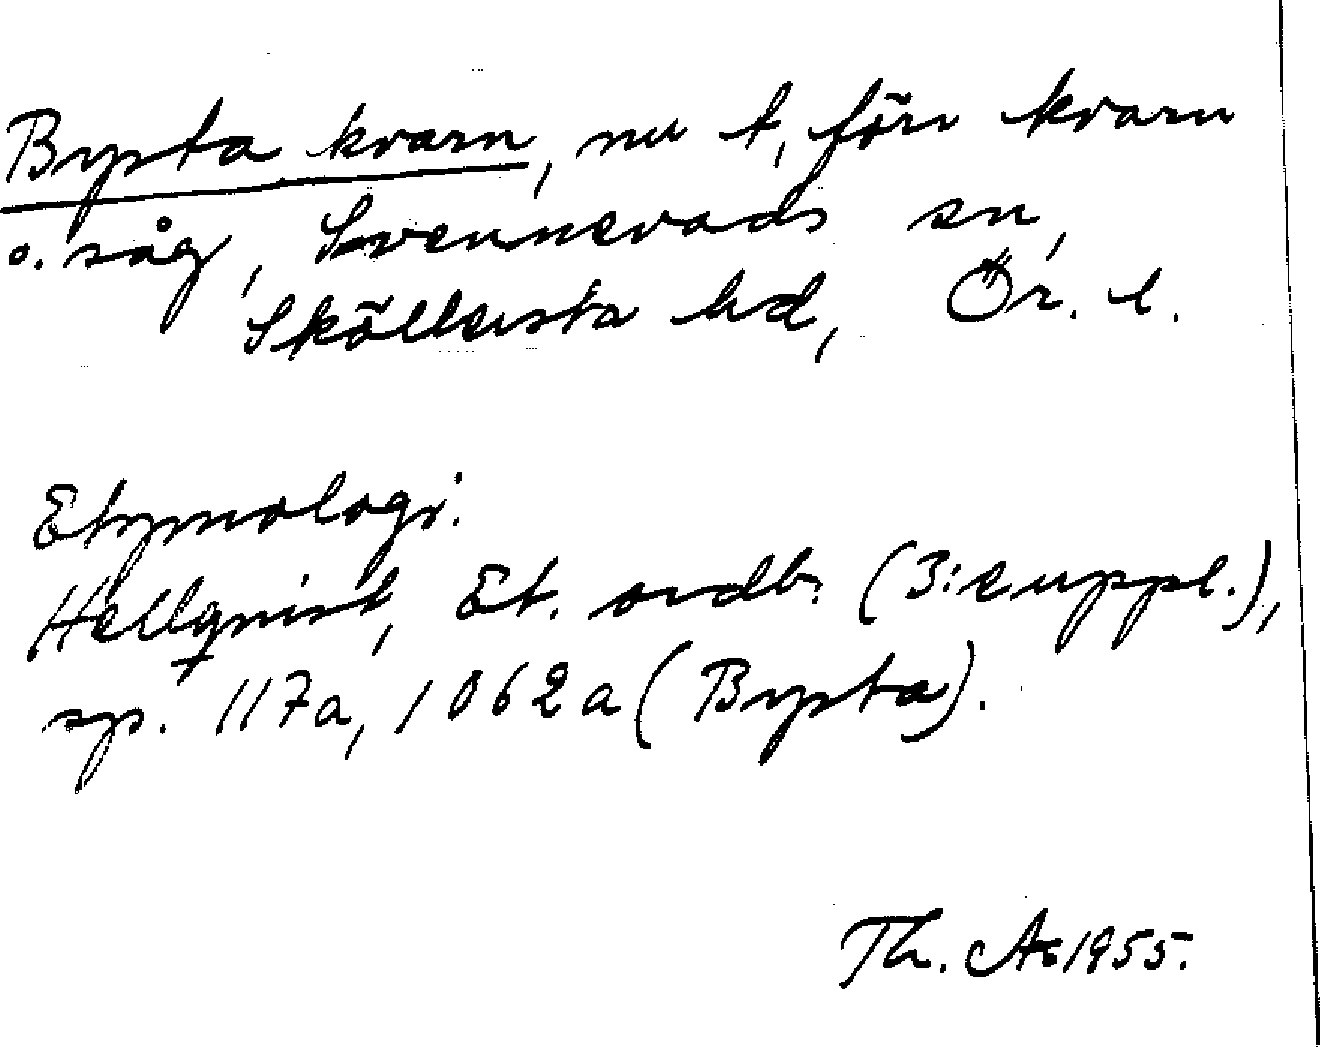 Bysta kvarn, nu t, förr kvarn
o. såg, Svennevads sn,
Sköllersta hd, Ör. l.
Etymologi.
Hellquist, Et. ordb. (3:e uppl.),
sp. 117a, 1062a (Bysta).
Th. A 1955.